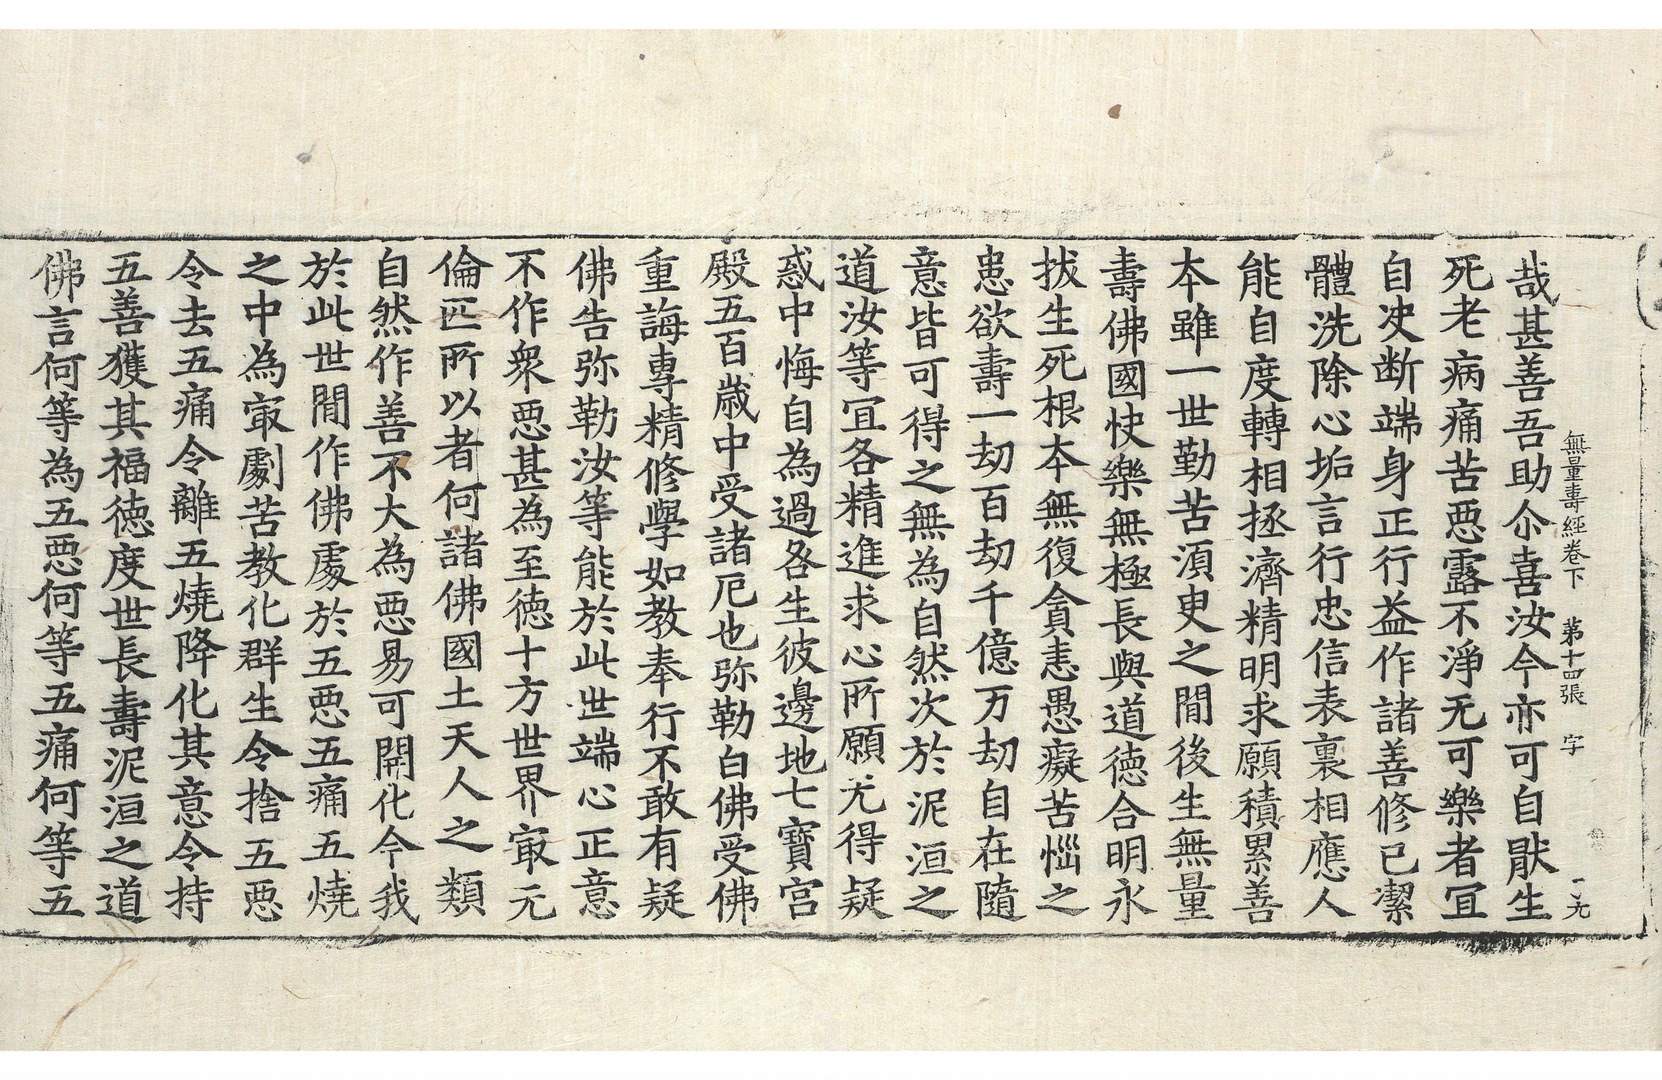 無量壽經卷下　第十四張　字
哉甚善吾助尒喜汝今亦可自厭生
死老病痛苦惡露不淨无可樂者宜
自決断端身正行益作諸善修已潔
體洗除心垢言行忠信表裏相應人
能自度轉相拯濟精明求願積累善
夲雖一世勤苦湏臾之閒後生無量
壽佛國快樂無極長與道德合明永
拔生死根夲無復貪恚愚癡苦惱之
患欲壽一劫百劫千億万劫自在隨
意皆可得之無為自然次於泥洹之
道汝等冝各精進求心所願无得疑
惑中悔自為過各生彼邊地七寶宮
殿五百歲中受諸厄也弥勒白佛受佛
重誨專精修學如教奉行不敢有疑
佛告弥勒汝等能於此世端心正意
不作衆惡甚為至德十方世界㝡无
倫匹所以者何諸佛國土天人之類
自然作善不大為惡易可開化今我
於此世閒作佛處於五惡五痛五燒
之中為㝡劇苦教化群生令捨五惡
令去五痛令離五燒降化其意令持
五善獲其福德度世長壽泥洹之道
佛言何等為五惡何等五痛何等五